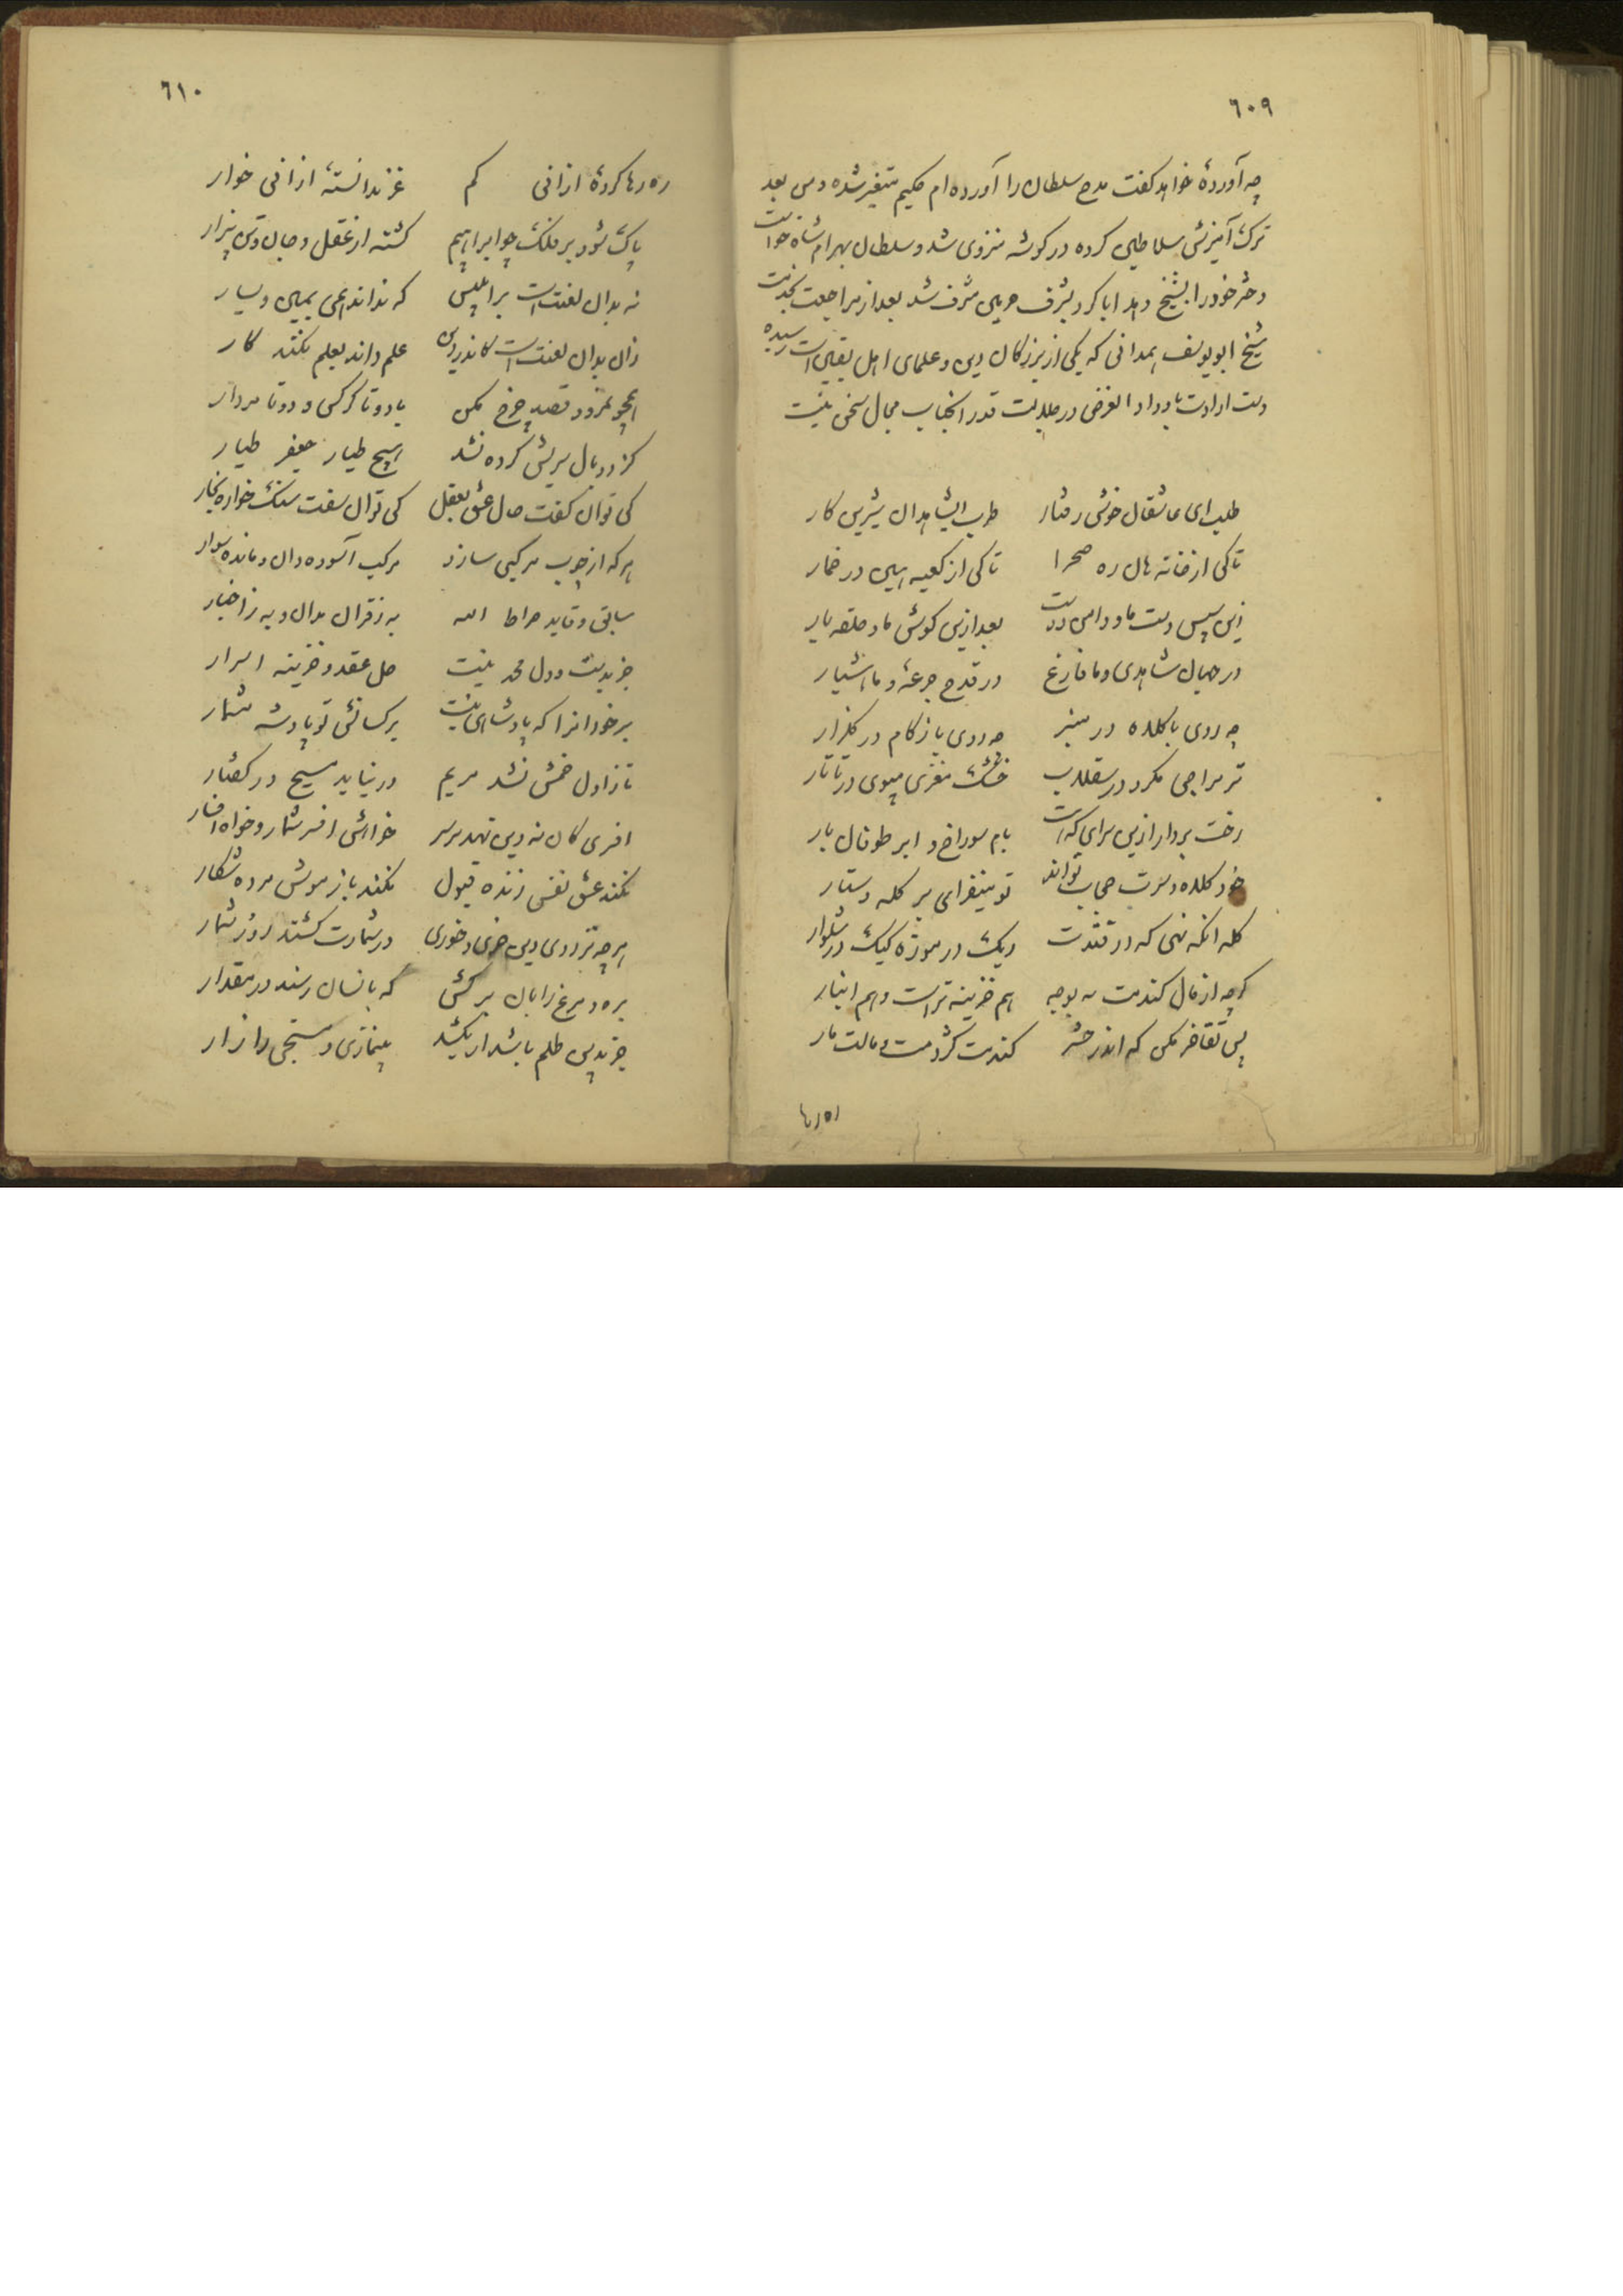 ٦٠٩
چه آوردهٔ خواهد کفت مدح سلطان را آورده ام حکیم متغیر شده و من بعد
ترک آمیزش سلاطین کرده در کوشه منزوی شد و سلطان بهرام شاه خواست
دختر خود را بشیخ دهد ابا کرد بشرف حرمین مشرف شد بعد از مراجعت بخدمت
شیخ ابو یوسف همدانی که یکی از بزرکان دین و علمای اهل یقین است رسیده
دست ارادت باو داد الغرض در جلالت قدر آنجناب مجال سخن نیست
طلب ای عاشقان خوش رفتار طرب ای شاهدان شیرین کار
تا کی از خانه هان ره صحرا تا کی از کعبه هین در خمار
زین سپس دست ما و دامن دوست بعد ازین کوش ما و حلقه یار
در جهان شاهدی و ما فارغ در قدح جرعهٔ و ما هشیار
چه روی با کلاه در منبر چه روی با زکام در کلزار
تر مزاجی مکرد در سقلاب خشک مغزی مپوی در تاتار
رخت بردار ازین سرای که هست بام سوراخ و ابر طوفان بار
خود کلاه و سرت حجاب تواند تو میفزای بر کله دستار
کله آنکه نهی که در فتدت ریک در موزه کیک در شلوار
کرچه از مال کندمت بوجه هم خزینه تراست و هم انبار
پس تفاخر مکن که اندر حشر کندمت کژدمت و مالت مار
ره رها
٦١٠
ره رها کردهٔ از آنی کم عز ندانستهٔ از آنی خوار
پاک شود بر فلک چو ابراهیم کشته از عقل و جان و تن بیزار
نه بدان لعنت است بر ابلیس که نداند همی یمین و یسار
زان بدان لعنت است کاندر دین علم داند بعلم نکند کار
همچو نمرود قصد چرخ مکن با دو تا کرکس و دو تا مردار
کز دو بال سریش کرده نشد هیچ طیار جعفر طیار
کی توان کفت حال عشق بعقل کی توان سفت سنک خاره بخار
هرکه از چوب مرکبی سازد مرکب آسوده دان و مانده سوار
سایق و قاید صراط الله به ز قرآن مدان و به ز اخبار
جز بدست و دل محمد نیست حل عقد و خزینه اسرار
سر خود آنرا که پادشاهی نیست بر کسانش تو پادشه مشمار
تا ز اول خمش نشد مریم در نیاید مسیح در کفتار
افسری کان نه دین نهد بر سر خواهش افسر شمار و خواه افسار
نکند عشق نفس زنده قبول نکند باز موش مرده شکار
هرچه نز روی دین خری و خوری در شمارت کشند روز شمار
بره و مرغ را بدان ره کش که بانسان رسند در مقدار
جز بدین ظلم باشد ار بکشد بی نمازی مسبحی را زار